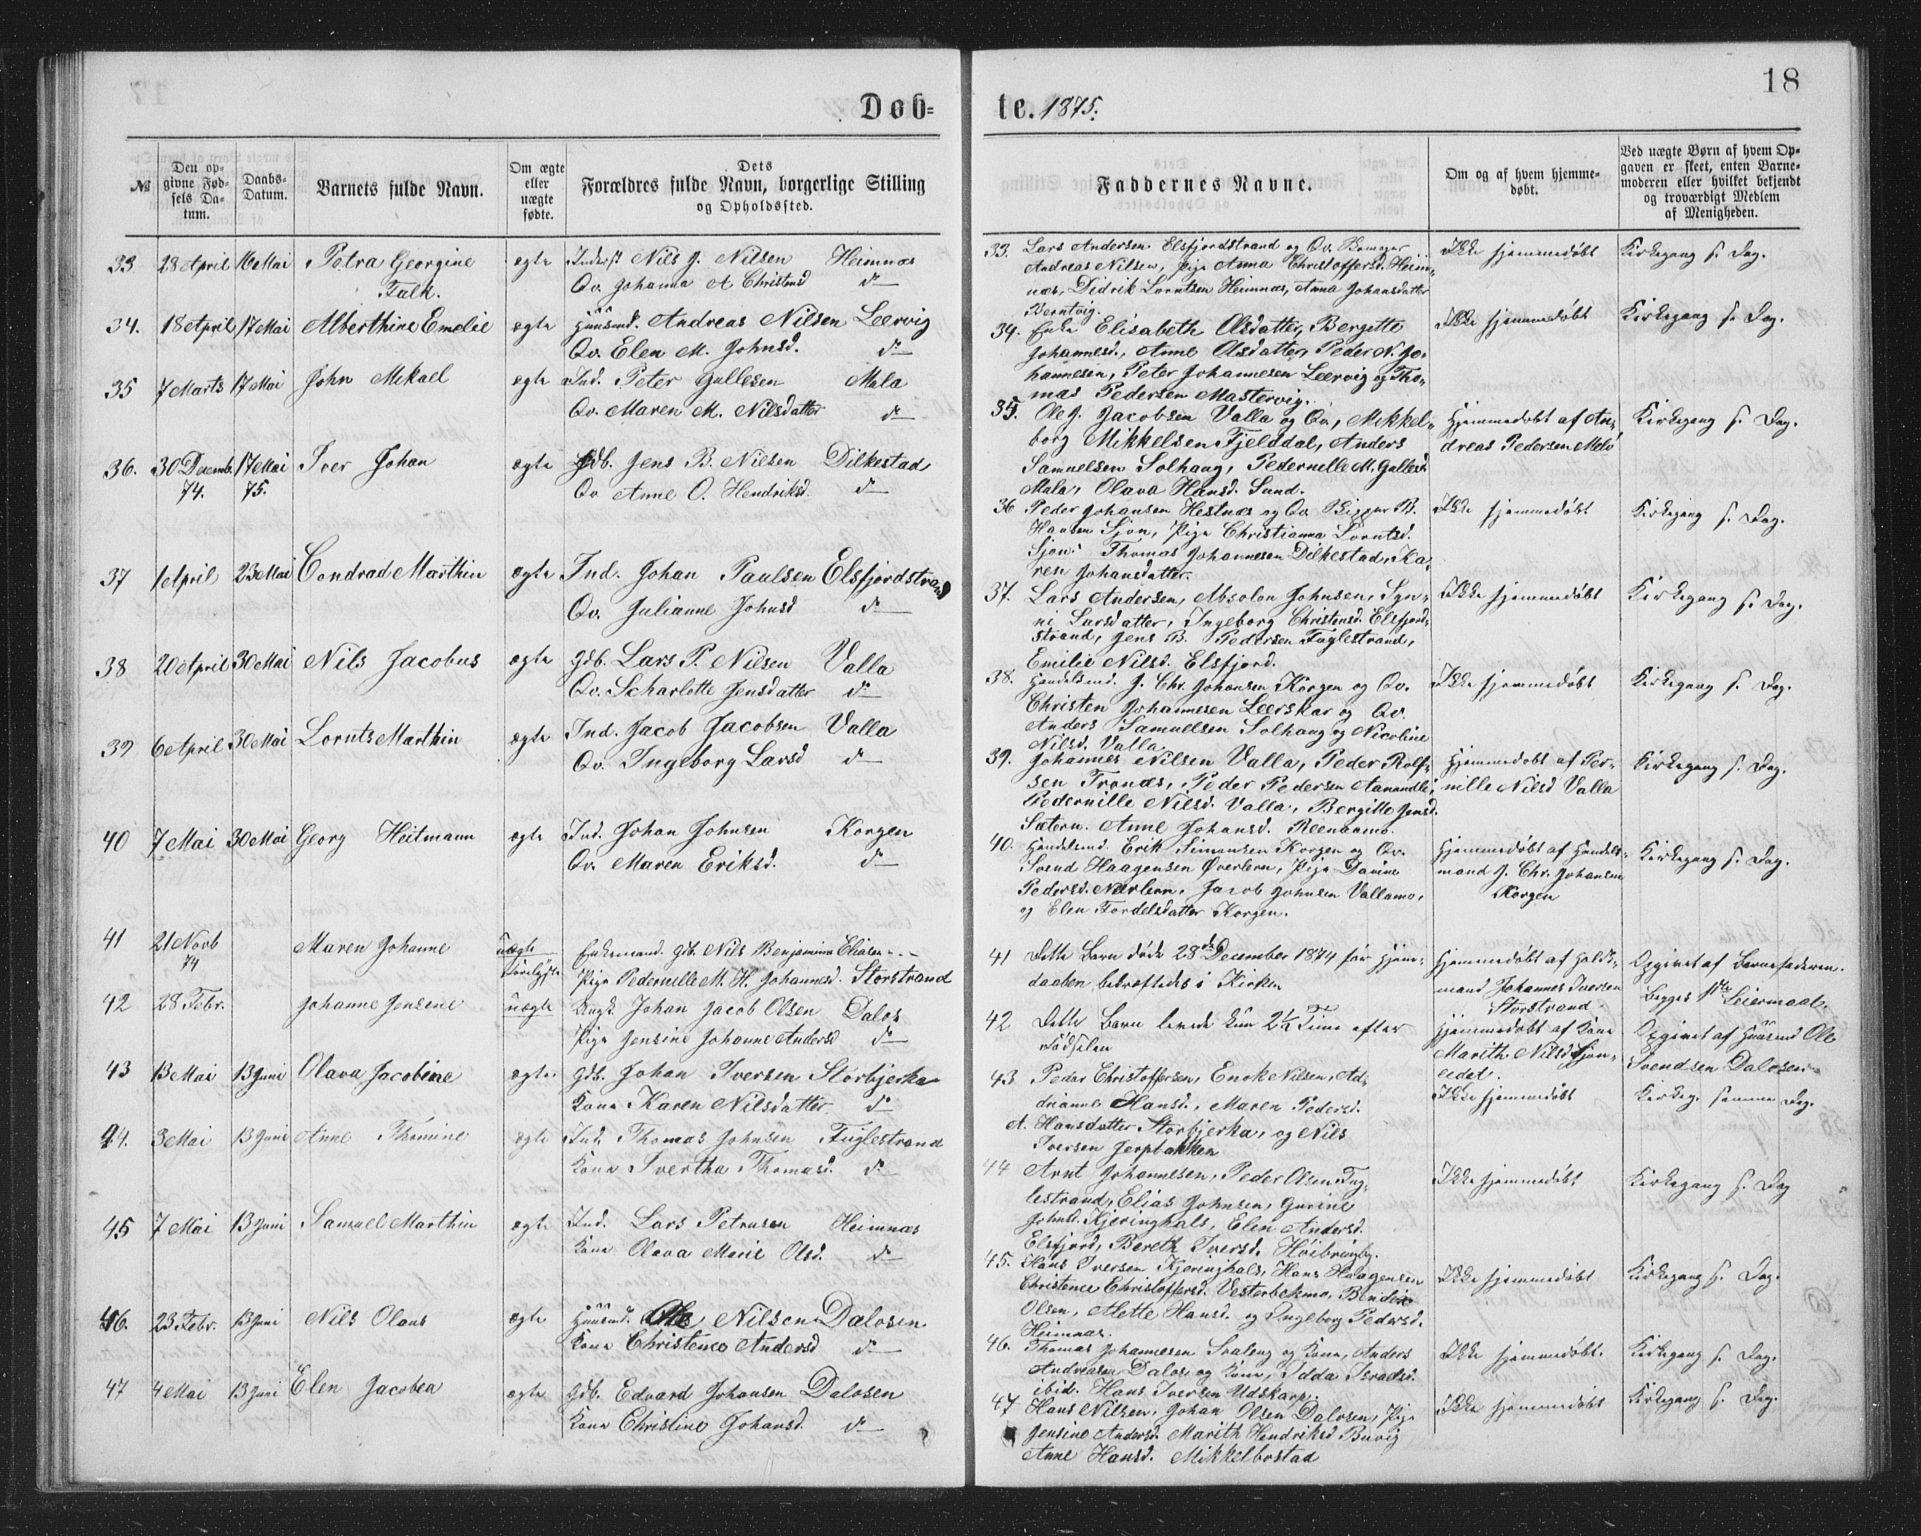 18
Døb=
te. 1875.
№
Den op-
givne Fød-
sels Da-
tum.
Daabs-
Datum.
Barnets fulde Navn.
Om ægte
eller
uægte
fødte.
Dets
Forældres fulde Navn, borgerlige Stilling
og Opholdssted.
Faddernes Navne.
Om og af hvem hjemme-
døbt.
Ved uægte Børn af hvem Op-
gaven er skeet, enten Barne-
moderen eller hvilket bekjendt
og troværdigt Medlem
af Menigheden.
33 28 April 16 Mai Petra Georgine ægte Inderst Nils J. Nilsen Heimnæs
Falk. Qv. Johanna A Christensd do
34. 18 April 17 Mai Alberthine Emelie ægte Huusmd. Andreas Nilsen Leervig
Qv. Elen M. Johnsd. do
35 7 Marts 17 Mai John Mikael ægte Ind. Peter Gullesen Mula
Qv. Maren M. Nilsdatter do
36. 30 Decemb. 17 Mai Iver Johan ægte Gdb. Jens B. Nilsen Dilkestad
74. 75. Qv Anne O. Hendriksd. do
37 1 April 23 Mai Condrad Marthin ægte Ind. Johan Paulsen Elsfjordstrand
Qv. Julianne Johnsd do
38 20 April 30 Mai Nils Jacobus ægte Gdb. Lars P. Nilsen Valla
Qv. Scharlotte Jensdatter do
39 6 April 30 Mai Lornts Marthin ægte Ind. Jacob Jacobsen Valla
Qv. Ingeborg Larsd do
40 7 Mai 30 Mai Georg Heitmann ægte Ind. Johan Johnsen Korgen
Qv. Maren Eriksd. do
41 21 Novb Maren Johanne uægte Enkemand. Gdb. Nils Benjamin Eliasen
74 Pige Pedernille M. H. Johannesd. Storstrand
42 28 Febr. Johanne Jensine uægte Ungk. Johan Jacob Olsen Dalos
Pige Jensine Johanne Andersd do
43 13 Mai 13 Juni Olava Jacobine ægte. Gdb. Johan Iversen Storbjerka
Kone Karen Nilsdatter do
44. 3 Mai 13 Juni Anne Thomine ægte Ind. Thomas Johnsen Fuglestrand
Kone Ivertha Thomasd. do
45 7 Mai 13 Juni Samuel Marthin ægte Ind. Lars Petersen Heimnæs
Kone Olava Marie Olsd. do
46. 23 Febr. 13 Juni Nils Olaus ægte Huusmd. Ole Nilsen Dalosen
Kone Christence Andersd do
47 4 Mai 13 Juni Elen Jacobea ægte Gdb. Edvard Johansen Dalosen
Kone Christine Johansd. do
33. Lars Andersen Elsfjordstrand og Qv.
Andreas Nilsen, Pige Anna Christoffersd. Heim-
næs, Didrik Lorntsen Heimnæs, Anna Johansdatter
Berntvig.
Ikke hjemmedøbt Kirkegang s. Dag.
34. Enke Elisabeth Olsdatter, Bergitte
Johannesd., Anne Olsdatter, Peder N. Jo-
hannesen, Peter Johannesen Leervig og Tho-
mas Pedersen Mastervig.
Ikke hjemmedøbt Kirkegang s. Dag.
35. Ole J. Jacobsen Valla og Qv., Mikkel-
borg Mikkelsen Fjelddal, Anders
Samuelsen Solhaug, Pedernille M. Gullesd.
Mula, Olava Hansd. Sund.
Hjemmedøbt af An-
dreas Pedersen Mela
Kirkegang s. Dag.
36 Peder Johansen Hestnæs og Qv. B.
Hansen Sjøn, Pige Christianna Lorntsd.
Sjøn. Thomas Johannesen Dilkestad, Ka-
ren Johansdatter.
Ikke hjemmedøbt Kirkegang s. Dag.
37. Lars Andersen, Absolon Johnsen, Syn-
ni Larsdatter, Ingeborg Christensd. Elsfjord-
strand, Jens B. Pedersen Fuglestrand,
Emilie Nilsd. Elsfjord.
Ikke hjemmedøbt Kirkegang s. Dag.
38. Handelsmd. J. Chr. Johansen Korgen og Qv.
Christen Johannesen Leerskar og Qv.
Anders Samuelsen Solhaug og Nicoline
Nilsd. Valla
Ikke hjemmedøbt Kirkegang s. Dag.
39. Johannes Nilsen Valla, Peder Rolf-
sen Tronæs, Peder Pedersen Aanundli,
Pedernille Nilsd. Valla, Bergitte Jensd.
Sætern. Anne Johansd. Reenaamo.
Hjemmedøbt af Per-
nille Nilsd Valla
Kirkegang s. Dag.
40. Handelsmd. Erik Simonsen Korgen og Qv.
Svend Haagensen Øverlern, Pige Davine
Pedersd. Nærlern, Jacob Johnsen Vallamo,
og Elen Tordelsdatter Korgen.
Hjemmedøbt af Handels-
mand J. Chr. Johansen
Korgen
Kirkegang s. Dag.
41 Dette Barn døde 28de December 1874 før Hjem-
daaben bekræftedes i Kirken
Hjemmedøbt af
mand Johannes Iversen
Storstrand
Opgivet af Barnefaderen.
Begges 1ste Leiermaal.
42 Dette Barn levede kun 2½ Time efter
Fødselen
Hjemmedøbt af Kone
Marith Nilsd Sjon-
eidet.
Opgivet af Huusmd Ole
Svendsen Dalosen
43 Peder Christoffersen, Enok Nilsen, Ad-
rianne Hansd., Maren Pedersd.
A. Hansdatter Storbjerka, og Nils
Iversen Jerpbakken
Ikke hjemmedøbt Kirkeg. samme Dag.
44 Arnt Johannesen, Peder Olsen Fug-
lestrand, Elias Johnsen, Gurine
Johnsd. Kjeringhals, Elen Andersd.
Elsfjord, Bereth Iversd. Høibrinby.
Ikke hjemmedøbt Kirkegang s. Dag
45. Hans Iversen Kjeringhals, Hans Haagensen
Christence Christoffersd. Vesterbekmo, Bendix
Olsen, Mette Hansd. og Ingeborg Pedersd.
Heimnæs.
Ikke hjemmedøbt Kirkegang s. Dag.
46. Thomas Johannesen og Kone, Anders
Andreasen Dalos, og Kone, Idda Isradsd.
ibid. Hans Iversen Udskarp.
Ikke hjemmedøbt. Kirkegang s. Dag.
47 Hans Nilsen, Johan Olsen Dalosen, Pige
Jensine Andersd. Marith Hendriksd Buvig
Anne Hansd. Mikkelbostad
Ikke hjemmedøbt Kirkegang s. Dag.